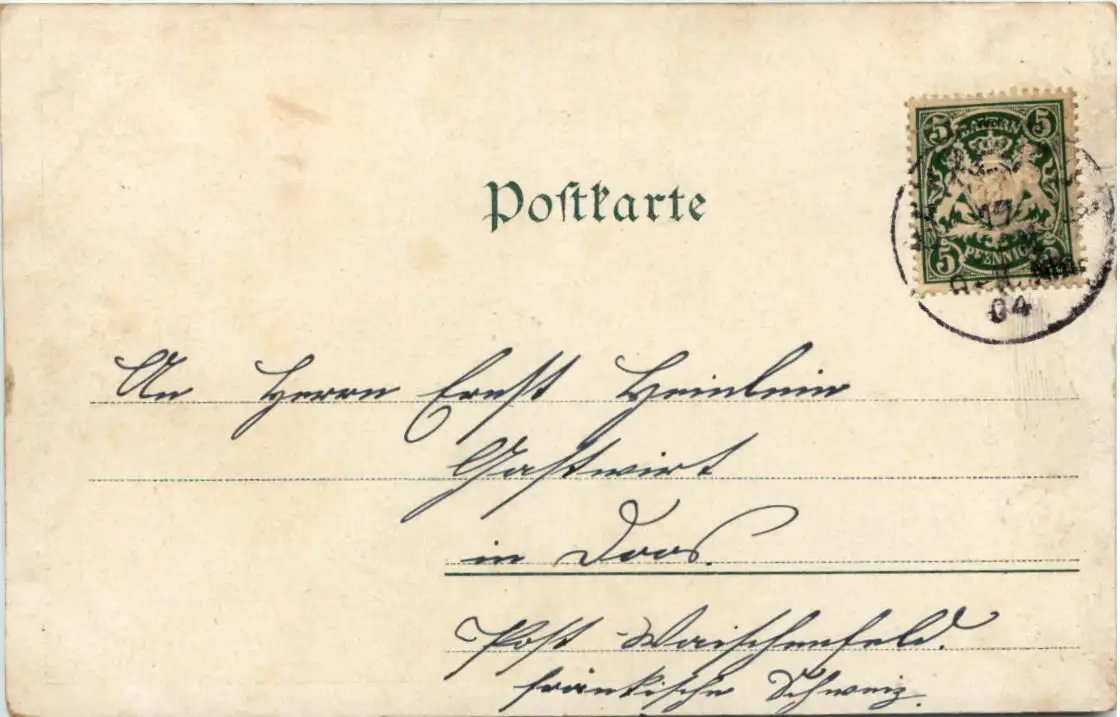 Postkarte
5 BAYERN 5
17
5 PFENNIG 5
04
An Herrn Ernst Heinlein
Gastwirt
in Doos.
Post Waischenfeld.
fränkische Schweiz.